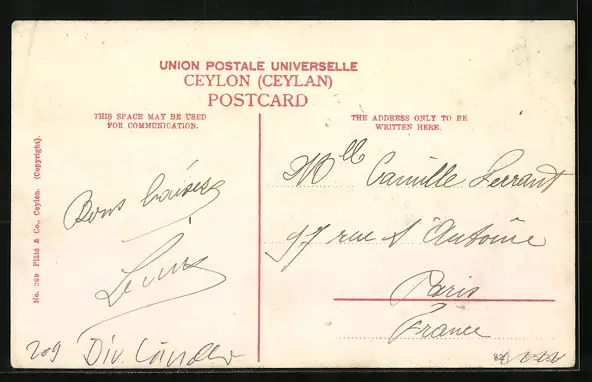 UNION POSTALE UNIVERSELLE
CEYLON (CEYLAN)
POSTCARD
THIS SPACE MAY BE USED
FOR COMMUNICATION.
THE ADDRESS ONLY TO BE
WRITTEN HERE.
No. 369 Plâté & Co., Ceylon. (Copyright).
Bons baisers
Mlle Camille
97 rue St Antoine
Paris
France
209 Div. Länder